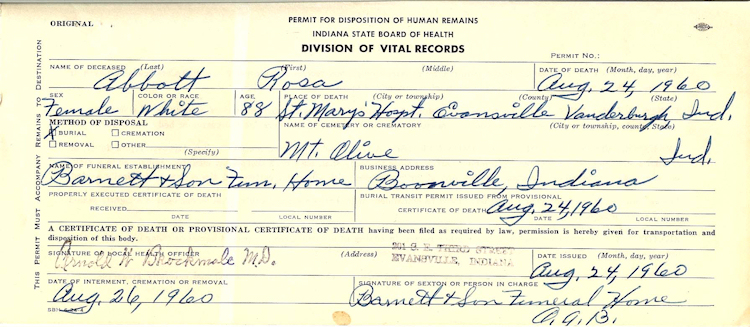 ORIGINAL
PERMIT FOR DISPOSITION OF HUMAN REMAINS
INDIANA STATE BOARD OF HEALTH
DIVISION OF VITAL RECORDS
PERMIT NO.:
THIS PERMIT MUST ACCOMPANY REMAINS TO DESTINATION
NAME OF DECEASED (Last) (First) (Middle) DATE OF DEATH (Month, day, year)
Abbott Rosa Aug. 24, 1960
SEX COLOR OR RACE AGE PLACE OF DEATH (City or township) (County) (State)
Female White 88 St. Marys Hospt. Evansville Vanderburgh Ind.
METHOD OF DISPOSAL NAME OF CEMETERY OR CREMATORY (City or township, county, State)
BURIAL CREMATION
REMOVAL OTHER
(Specify)
Mt. Olive Ind.
NAME OF FUNERAL ESTABLISHMENT BUSINESS ADDRESS
Barnett & Son Fun. Home Boonville, Indiana
PROPERLY EXECUTED CERTIFICATE OF DEATH BURIAL TRANSIT PERMIT ISSUED FROM PROVISIONAL
RECEIVED CERTIFICATE OF DEATH Aug. 24, 1960
DATE LOCAL NUMBER DATE LOCAL NUMBER
A CERTIFICATE OF DEATH OR PROVISIONAL CERTIFICATE OF DEATH having been filed as required by law, permission is hereby given for transportation and
disposition of this body.
SIGNATURE OF LOCAL HEALTH OFFICER (Address) DATE ISSUED (Month, day, year)
Arnold W Brockmole M.D. 201 S. E. THIRD STREET
EVANSVILLE, INDIANA Aug. 24, 1960
DATE OF INTERMENT, CREMATION OR REMOVAL SIGNATURE OF SEXTON OR PERSON IN CHARGE
Aug. 26, 1960 Barnett & Son Funeral Home